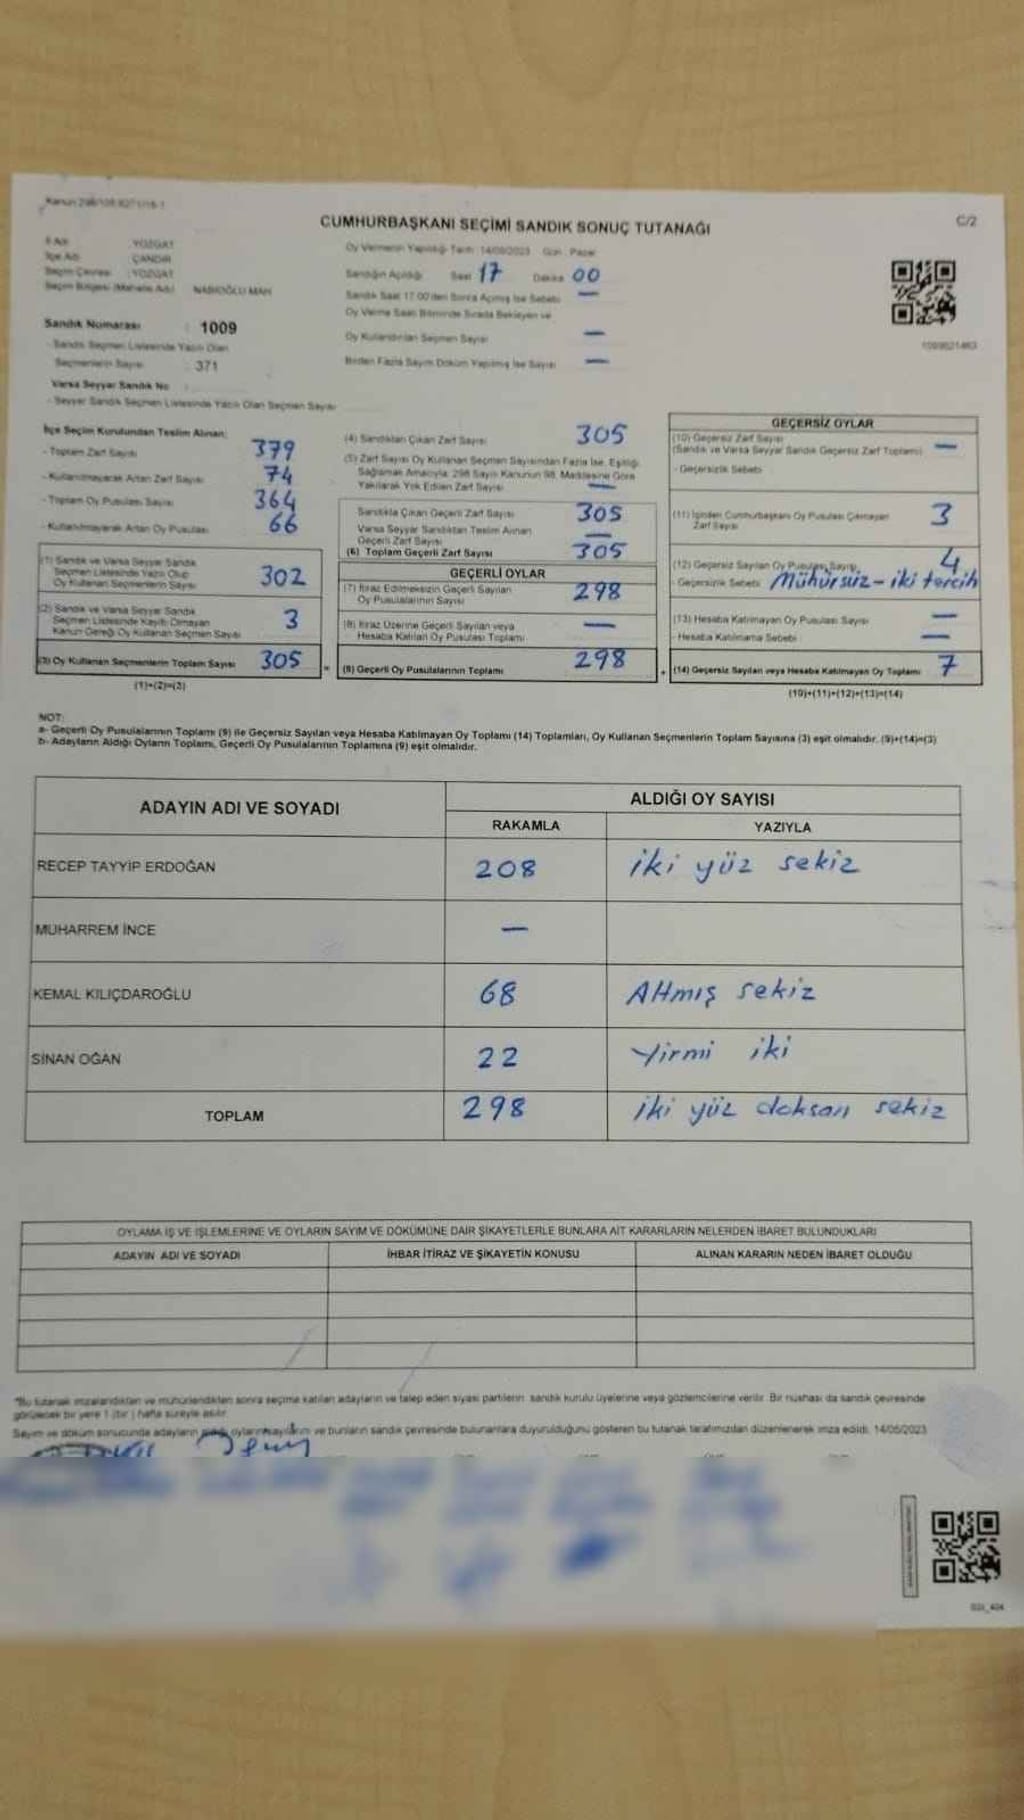 CUMHURBAŞKANI SEÇİMİ SANDIK SONUÇ TUTANAĞI
C/2
İl Adı : YOZGAT
İlçe Adı : ÇANDIR
Seçim Çevresi : YOZGAT
Seçim Bölgesi (Mahalle Adı) NABİOĞLU MAH
Oy Vermenin Yapıldığı Tarih : 14/05/2023 Gün : Pazar
Sandığın Açıldığı Saat 17 Dakika 00
Sandık Saat 17.00'den Sonra Açmış İse Sebebi —
Oy Verme Saati Bitiminde Sırada Bekleyen ve
Oy Kullandırılan Seçmen Sayısı —
Birden Fazla Sayım Döküm Yapılmış İse Sayısı —
Sandık Numarası : 1009
- Sandık Seçmen Listesinde Yazılı Olan
Seçmenlerin Sayısı : 371
Varsa Seyyar Sandık No :
- Seyyar Sandık Seçmen Listesinde Yazılı Olan Seçmen Sayısı
İlçe Seçim Kurulundan Teslim Alınan:
- Toplam Zarf Sayısı 379
- Kullanılmayarak Artan Zarf Sayısı 74
- Toplam Oy Pusulası Sayısı 364
- Kullanılmayarak Artan Oy Pusulası 66
(1) Sandık ve Varsa Seyyar Sandık
Seçmen Listesinde Yazılı Olup
Oy Kullanan Seçmenlerin Sayısı 302
(2) Sandık ve Varsa Seyyar Sandık
Seçmen Listesinde Kayıtlı Olmayan
Kanun Gereği Oy Kullanan Seçmen Sayısı 3
(3) Oy Kullanan Seçmenlerin Toplam Sayısı 305
(1)+(2)=(3)
(4) Sandıktan Çıkan Zarf Sayısı 305
(5) Zarf Sayısı Oy Kullanan Seçmen Sayısından Fazla İse, Eşitliği
Sağlamak Amacıyla; 298 Sayılı Kanunun 98. Maddesine Göre
Yakılarak Yok Edilen Zarf Sayısı —
Sandıkta Çıkan Geçerli Zarf Sayısı 305
Varsa Seyyar Sandıktan Teslim Alınan
Geçerli Zarf Sayısı —
(6) Toplam Geçerli Zarf Sayısı 305
GEÇERLİ OYLAR
(7) İtiraz Edilmeksizin Geçerli Sayılan
Oy Pusulalarının Sayısı 298
(8) İtiraz Üzerine Geçerli Sayılan veya
Hesaba Katılan Oy Pusulası Toplamı —
(9) Geçerli Oy Pusulalarının Toplamı 298
GEÇERSİZ OYLAR
(10) Geçersiz Zarf Sayısı
(Sandık ve Varsa Seyyar Sandık Geçersiz Zarf Toplamı) —
- Geçersizlik Sebebi
(11) İçinden Cumhurbaşkanı Oy Pusulası Çıkmayan
Zarf Sayısı 3
(12) Geçersiz Sayılan Oy Pusulası Sayısı 4
- Geçersizlik Sebebi Mühürsüz - iki tercih
(13) Hesaba Katılmayan Oy Pusulası Sayısı —
- Hesaba Katılmama Sebebi —
(14) Geçersiz Sayılan veya Hesaba Katılmayan Oy Toplamı 7
(10)+(11)+(12)+(13)=(14)
NOT:
a- Geçerli Oy Pusulalarının Toplamı (9) ile Geçersiz Sayılan veya Hesaba Katılmayan Oy Toplamı (14) Toplamları, Oy Kullanan Seçmenlerin Toplam Sayısına (3) eşit olmalıdır. (9)+(14)=(3)
b- Adayların Aldığı Oyların Toplamı, Geçerli Oy Pusulalarının Toplamına (9) eşit olmalıdır.
ADAYIN ADI VE SOYADI ALDIĞI OY SAYISI
RAKAMLA YAZIYLA
RECEP TAYYİP ERDOĞAN 208 iki yüz sekiz
MUHARREM İNCE —
KEMAL KILIÇDAROĞLU 68 Altmış sekiz
SİNAN OĞAN 22 Yirmi iki
TOPLAM 298 iki yüz doksan sekiz
OYLAMA İŞ VE İŞLEMLERİNE VE OYLARIN SAYIM VE DÖKÜMÜNE DAİR ŞİKAYETLERLE BUNLARA AİT KARARLARIN NELERDEN İBARET BULUNDUKLARI
ADAYIN ADI VE SOYADI İHBAR İTİRAZ VE ŞİKAYETİN KONUSU ALINAN KARARIN NEDEN İBARET OLDUĞU
"Bu tutanak imzalandıktan ve mühürlendikten sonra seçime katılan adayların ve talep eden siyasi partilerin sandık kurulu üyelerine veya gözlemcilerine verilir. Bir nüshası da sandık çevresinde
görülecek bir yere 1 (bir) hafta süreyle asılır.
Sayım ve döküm sonucunda adayların aldığı oyların sayılarını ve bunların sandık çevresinde bulunanlara duyurulduğunu gösteren bu tutanak tarafımızdan düzenlenerek imza edildi. 14/05/2023